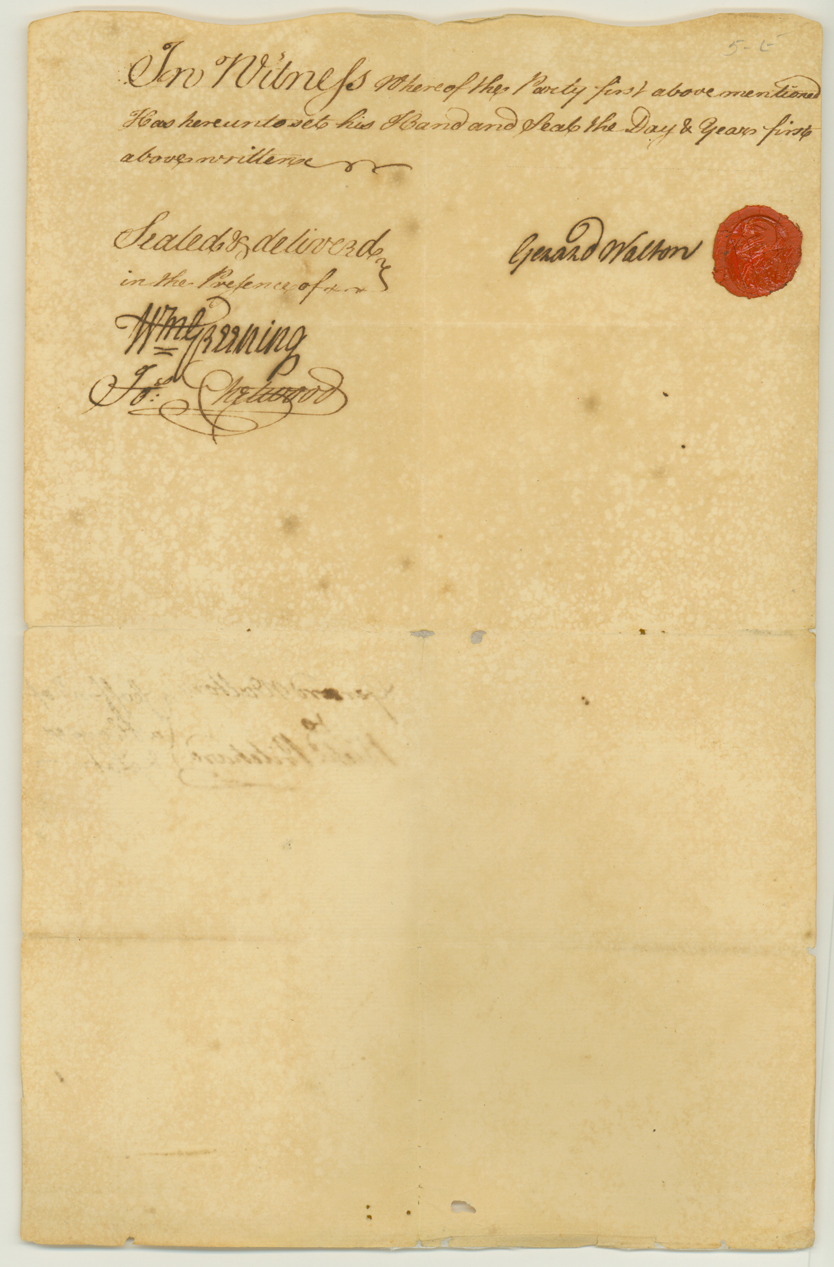 5-6
In Witness Whereof the Party first above mentioned
Has hereunto set his Hand and Seal the Day & Year first
above written
Sealed & deliverd
in the Presence of
Gerard Walton
Wm Greening
Jos. Chetwood
Gerard Walton
to